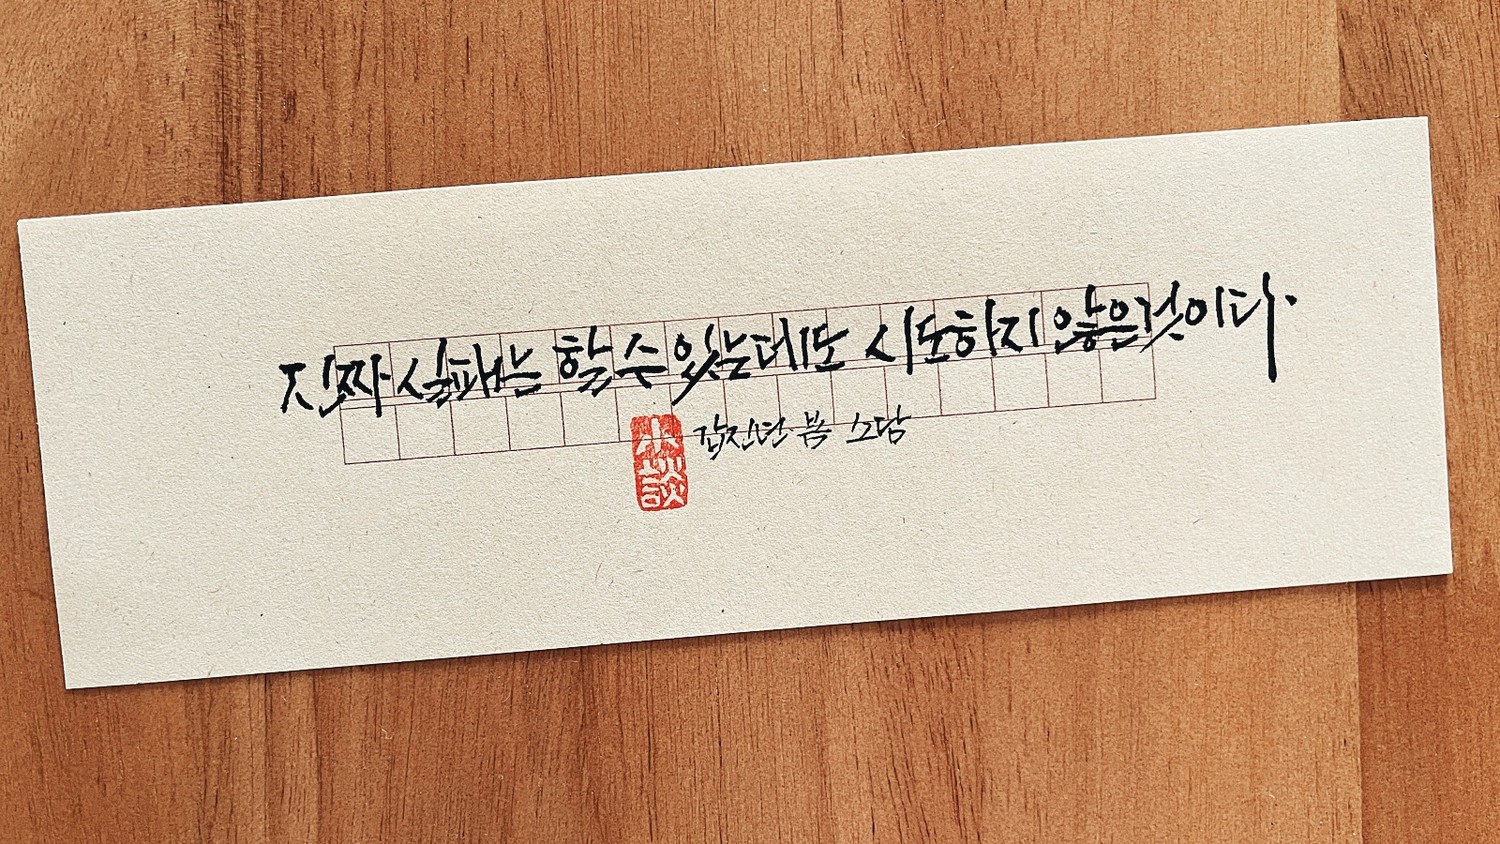 진짜 실패는 할 수 있는데도 시도하지 않은 것이다.
갑진년 봄 소담
小談